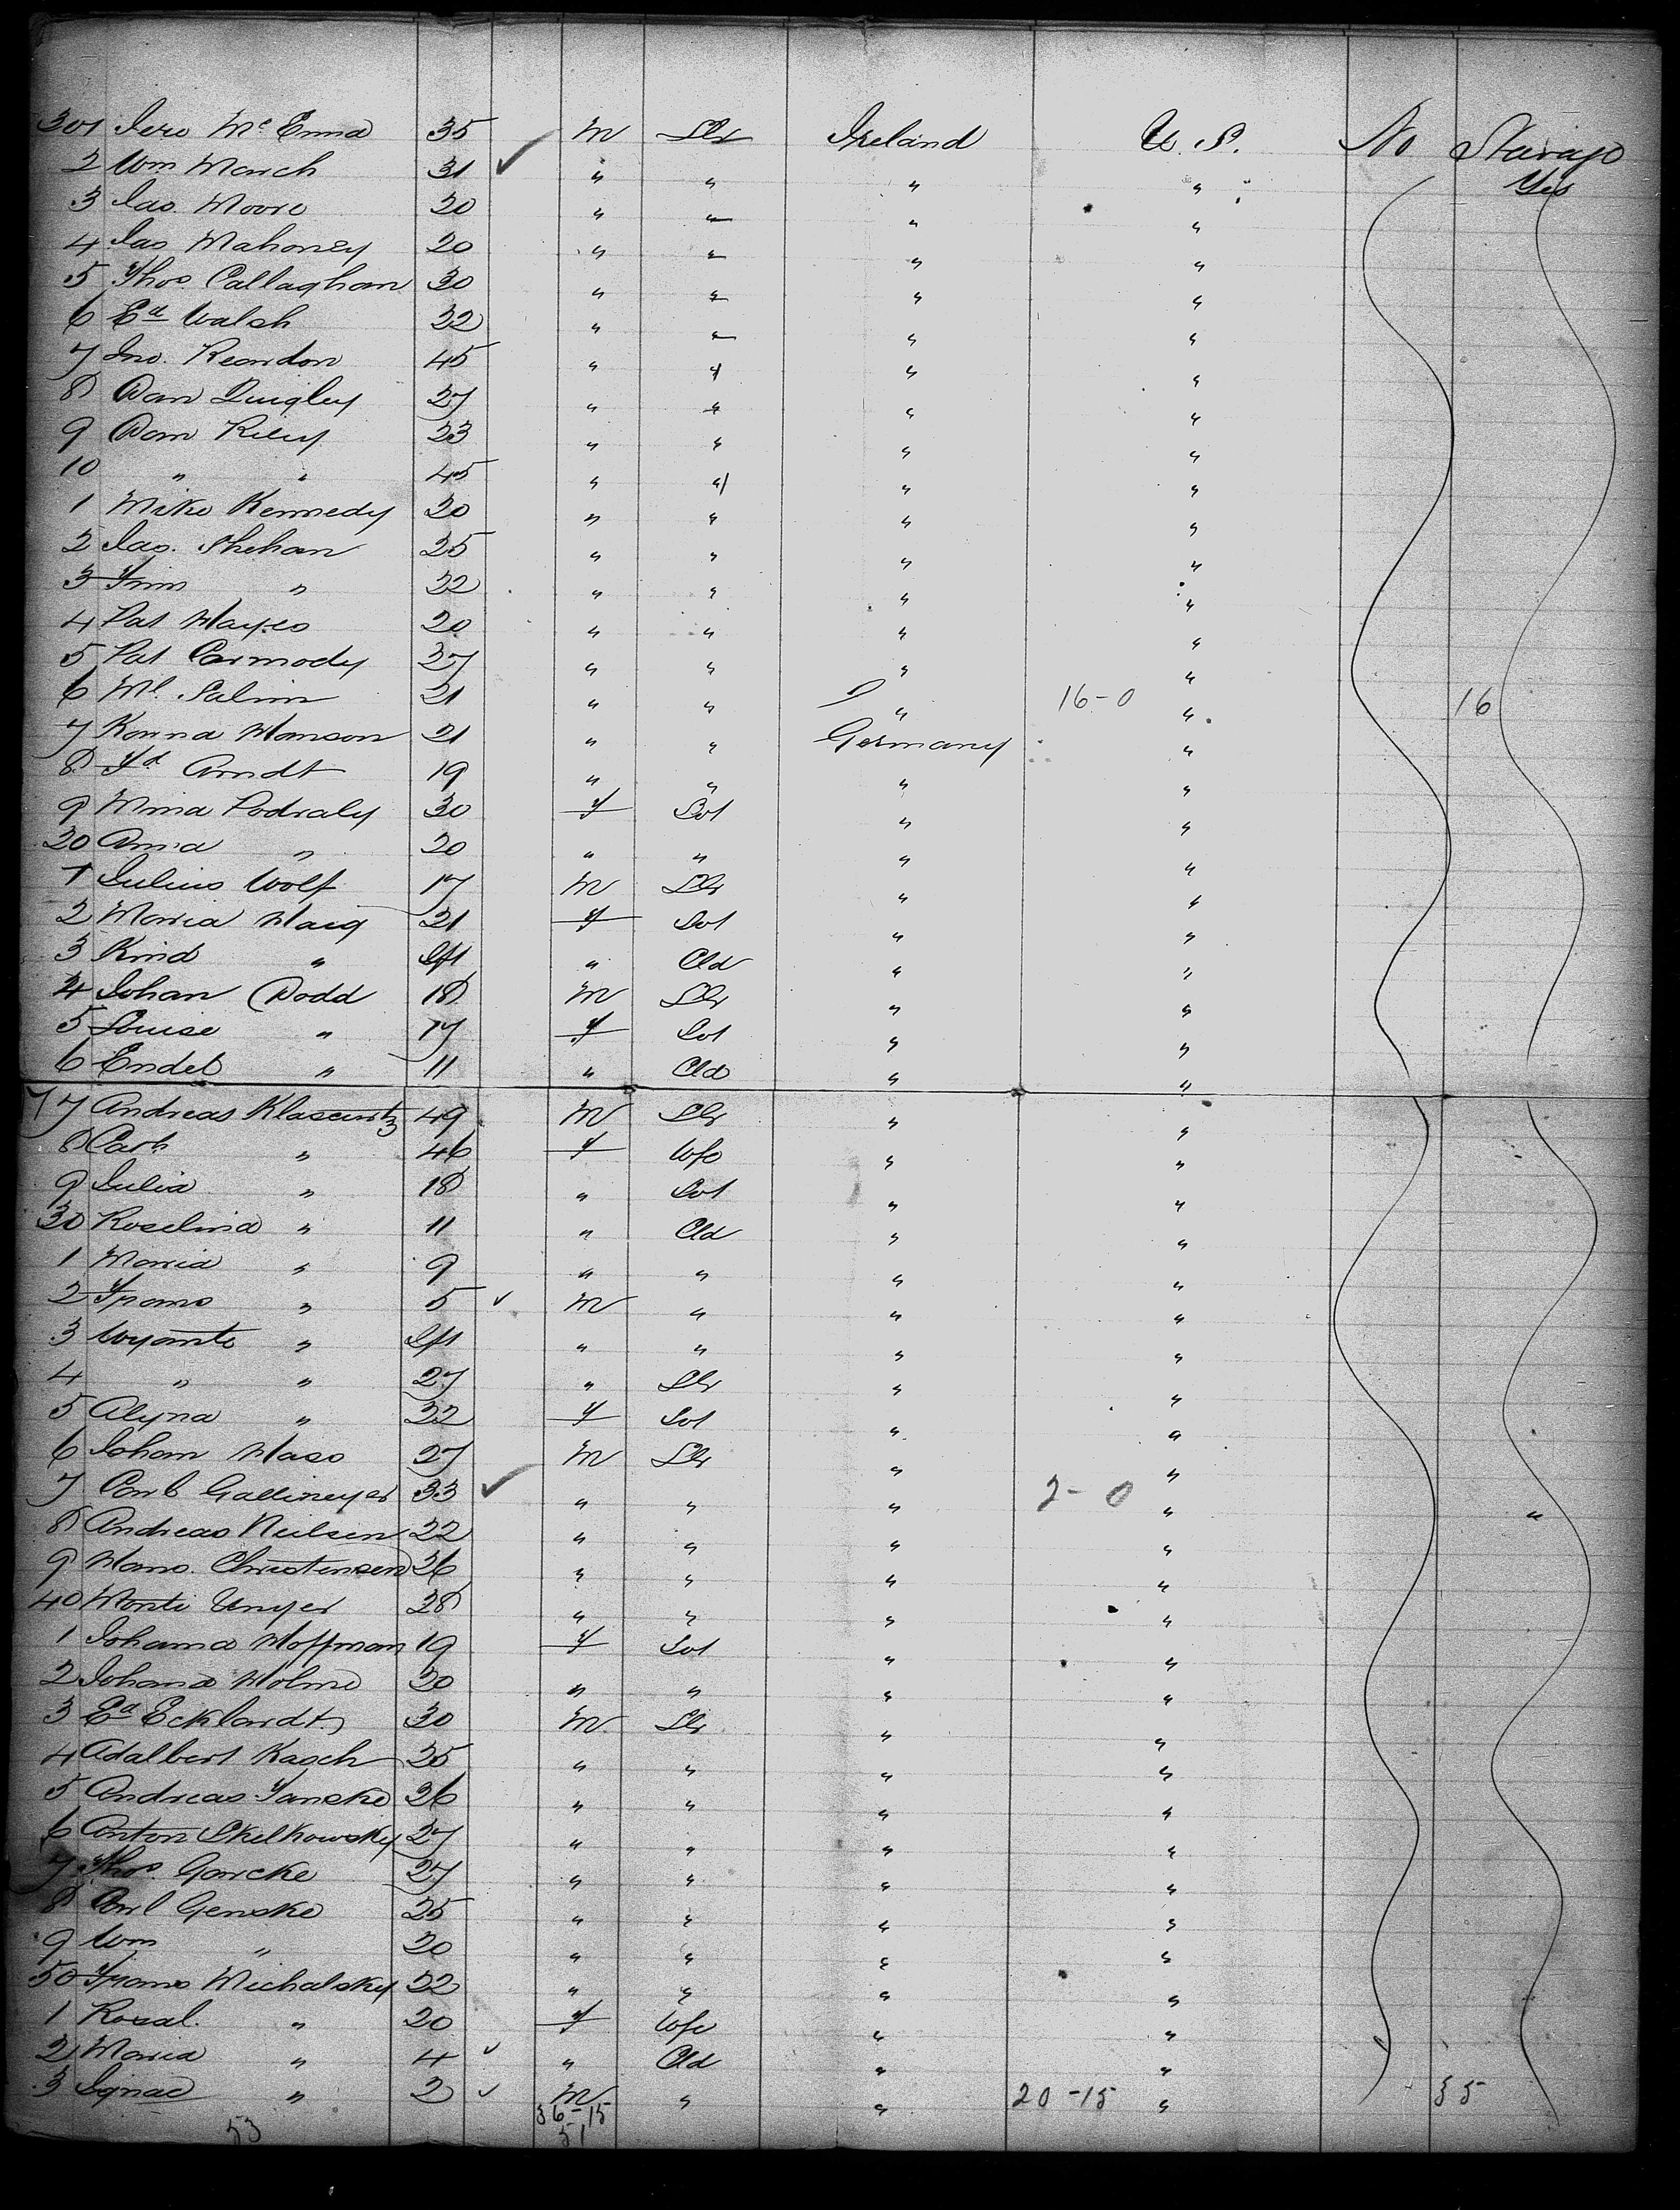 301 Jere McEnna 35 M Lbr Ireland U. S. No Steerage
2 Wm March 31 ✓ " " " " Yes
3 Jas. Moore 20 " " " "
4 Jas Mahoney 20 " " " "
5 Thos Callaghan 30 " " " "
6 Ed Walsh 22 " " " "
7 Jno. Reardon 45 " " " "
8 Dan Quigley 27 " " " "
9 Dan Riley 23 " " " "
10 " " 45 " " " "
1 Mike Kennedy 20 " " " "
2 Jas. Shehan 25 " " " "
3 Tim " 22 " " " "
4 Pat Hayes 20 " " " "
5 Pat Carmody 27 " " " "
6 Ml 21 " " " 16-0 " 16
7 Hanson 21 " " Germany "
8 Fd Arndt 19 " " " "
9 Mina Podraly 30 f Svt " "
20 Anna " 20 " " " "
1 Julius Wolf 17 M Lbr " "
2 Maria Haig 21 f Svt " "
3 Kind " Ift " Cld " "
4 Johan Dodd 18 M Lbr " "
5 Louise " 17 f Svt " "
6 Endel " 11 " Cld " "
7 Andreas 49 M Lbr " "
8 Cath " 46 f Wfe " "
9 Julia " 18 " Svt " "
30 Roselina " 11 " Cld " "
1 Maria " 9 " " " "
2 Frans " 5 ✓ M " " "
3 " Ift " " " "
4 " " 27 " Lbr " "
5 " 22 f Svt " "
6 Johan Hass 27 M Lbr " "
7 Carl 33 ✓ " " " 2-0 " "
8 Andreas Neilsen 22 " " " "
9 Hans. Christensen 26 " " " "
40 28 " " " "
1 Johanna Hoffman 19 f Svt " "
2 Johana Holme 20 " " " "
3 Ed Ecklardt 30 M Lbr " "
4 Adalbert Kasch 25 " " " "
5 Andreas Janske 26 " " " "
6 Anton Skelkowsky 27 " " " "
7 Thos. Garcke 27 " " " "
8 Carl Genske 25 " " " "
9 Wm " 20 " " " "
50 Frans Michalsky 22 " " " "
1 Rosal. " 20 f Wfe " "
2 Maria " 4 ✓ " Cld " "
3 Ignac " 2 ✓ M " " 20-15 " 35
36-15
53 51